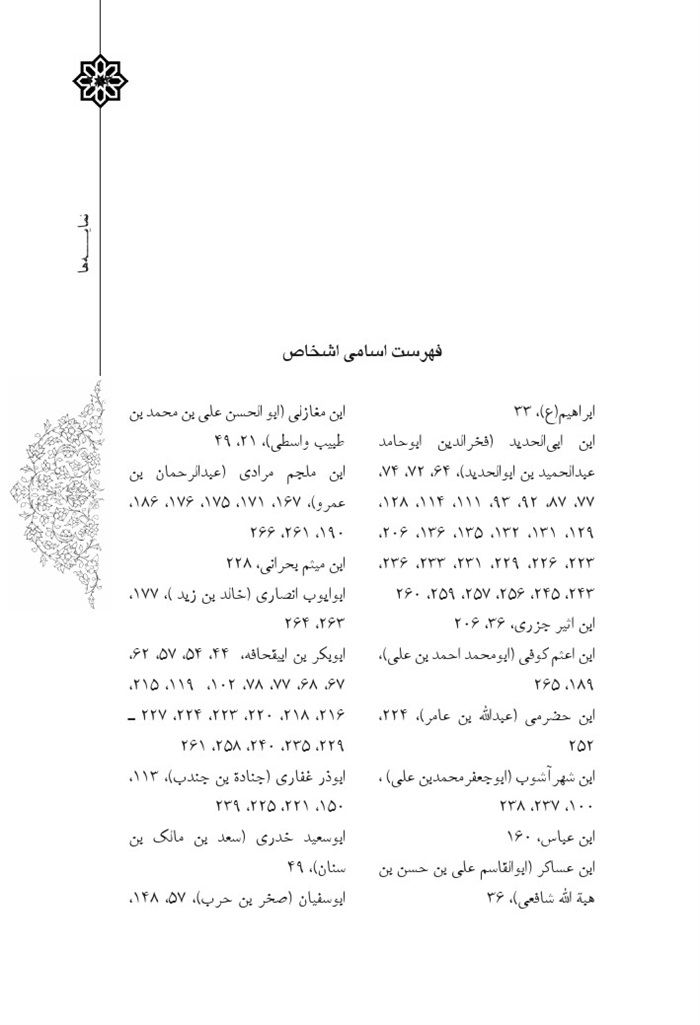 نمایـــه‌ها
فهرست اسامی اشخاص
ابراهیم(ع)، ۳۳
ابن ابی‌الحدید (فخرالدین ابوحامد
عبدالحمید بن ابوالحدید)، ۶۴، ۷۲، ۷۴،
۷۷، ۸۷، ۹۲، ۹۳، ۱۱۱، ۱۱۴، ۱۲۸،
۱۲۹، ۱۳۱، ۱۳۲، ۱۳۵، ۱۳۶، ۲۰۶،
۲۲۳، ۲۲۶، ۲۲۹، ۲۳۱، ۲۳۳، ۲۳۶،
۲۴۳، ۲۴۵، ۲۵۶، ۲۵۷، ۲۵۹، ۲۶۰
ابن اثیر جزری، ۳۶، ۲۰۶
ابن اعثم کوفی (ابومحمد احمد بن علی)،
۱۸۹، ۲۶۵
ابن حضرمی (عبدالله بن عامر)، ۲۲۴،
۲۵۲
ابن شهرآشوب (ابوجعفرمحمدبن علی) ،
۱۰۰، ۲۳۷، ۲۳۸
ابن عباس، ۱۶۰
ابن عساکر (ابوالقاسم علی بن حسن بن
هبة الله شافعی)، ۳۶
ابن مغازلی (ابو الحسن علی بن محمد بن
طبیب واسطی)، ۲۱، ۴۹
ابن ملجم مرادی (عبدالرحمان بن
عمرو)، ۱۶۷، ۱۷۱، ۱۷۵، ۱۷۶، ۱۸۶،
۱۹۰، ۲۶۱، ۲۶۶
ابن میثم بحرانی، ۲۲۸
ابوایوب انصاری (خالد بن زید )، ۱۷۷،
۲۶۳، ۲۶۴
ابوبکر بن ابیقحافه، ۴۴، ۵۴، ۵۷، ۶۲،
۶۷، ۶۸، ۷۷، ۷۸، ۱۰۲، ۱۱۹، ۲۱۵،
۲۱۶، ۲۱۸، ۲۲۰، ۲۲۳، ۲۲۴، ۲۲۷ ـ
۲۲۹، ۲۳۵، ۲۴۰، ۲۵۸، ۲۶۱
ابوذر غفاری (جنادة بن جندب)، ۱۱۳،
۱۵۰، ۲۲۱، ۲۲۵، ۲۳۹
ابوسعید خدری (سعد بن مالک بن
سنان)، ۴۹
ابوسفیان (صخر بن حرب)، ۵۷، ۱۴۸،